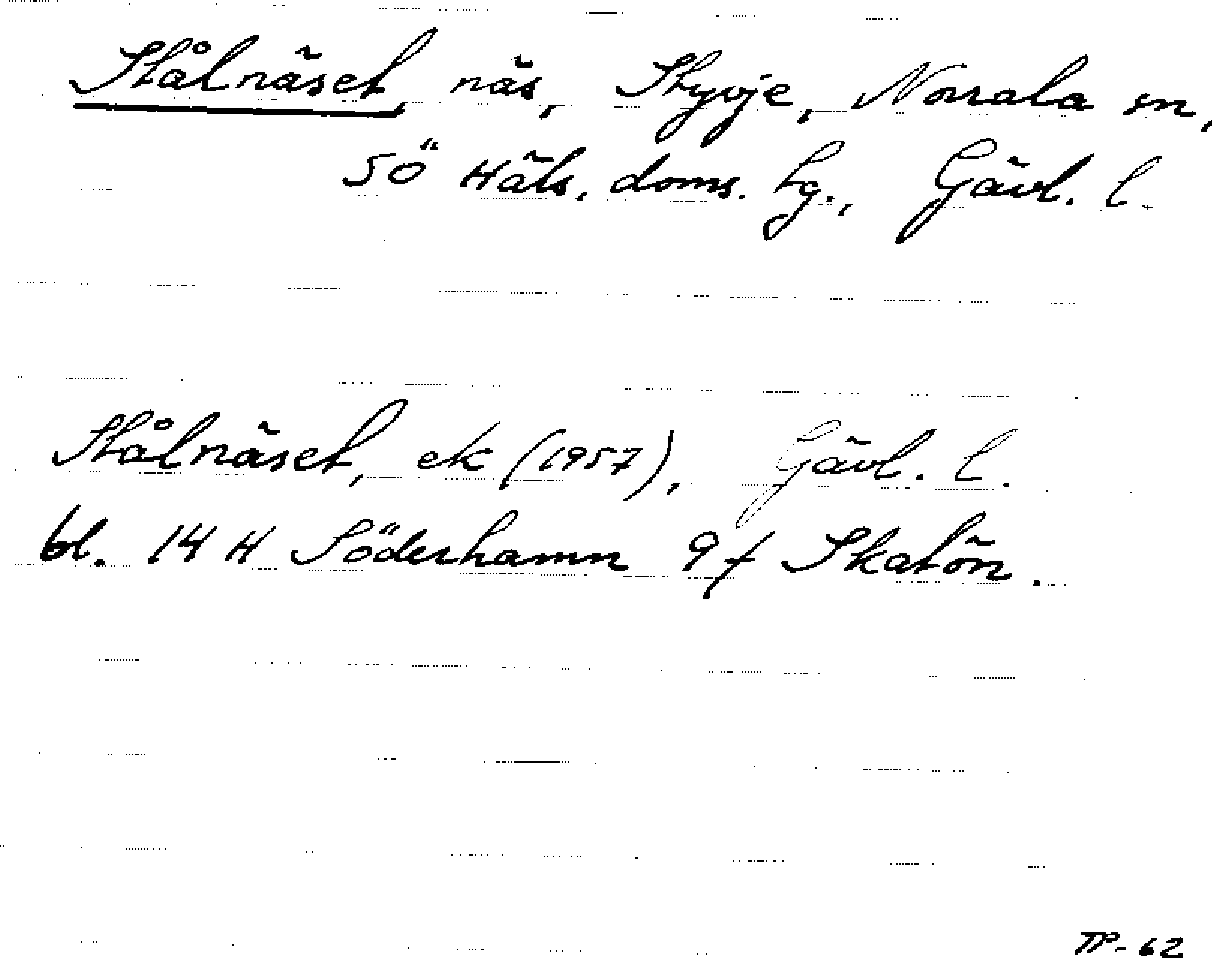 Stålnäset, näs, Styvje, Norrala sn,
SÖ Häls. doms. hg., Gävl. l.
Stålnäset, ek (1957), Gävl. l.
bl. 14 H Söderhamn 9 f Skatön.
TP-62